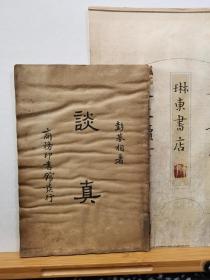 彭基相著
談真
商務印書館發行
琳東書店